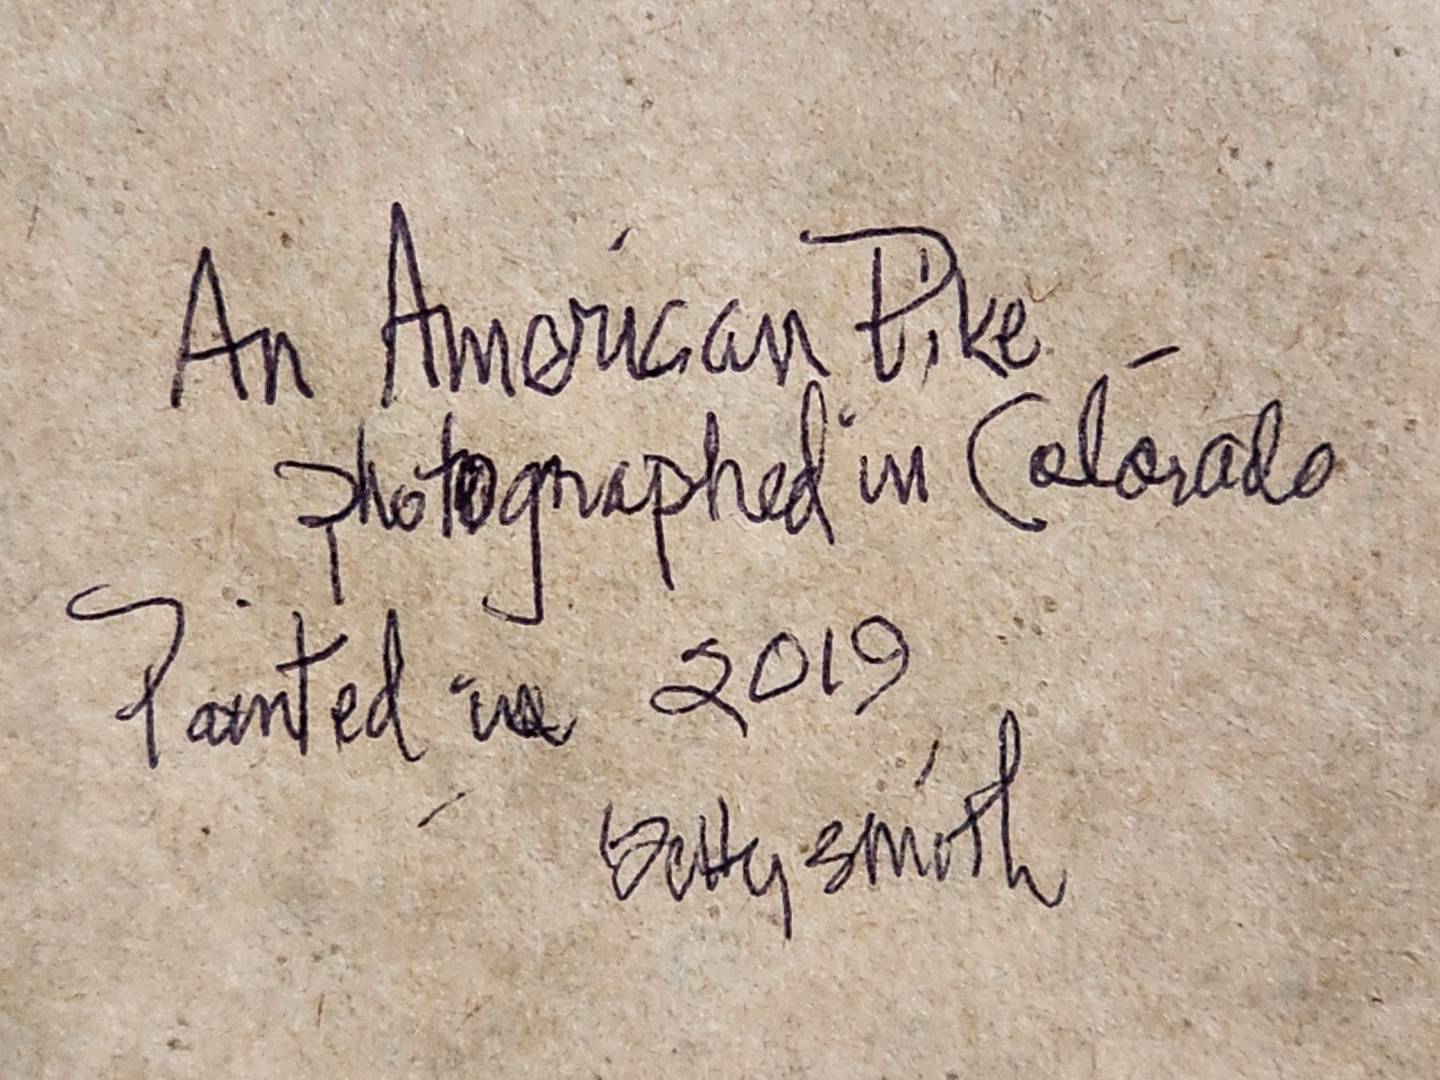 An American Pike
photographed in Colorado
Painted in 2019
Betty Smith